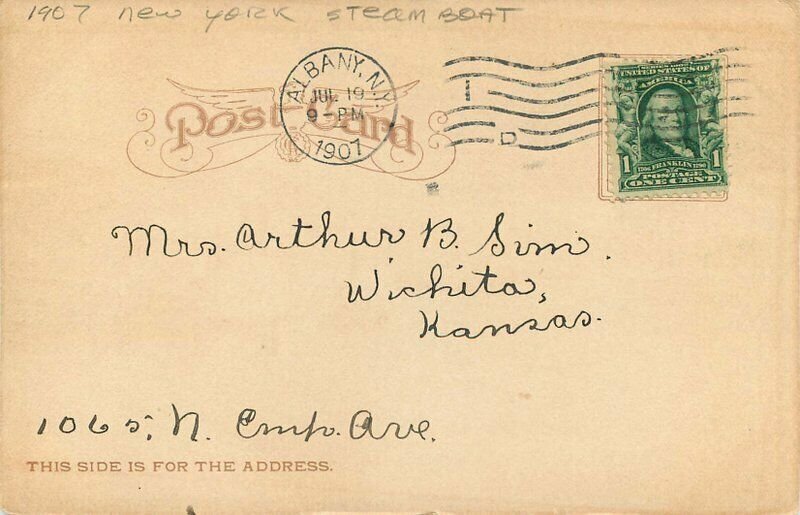 1907 new york STEAM BOAT
Post Card
ALBANY, N.Y.
JUL 19
9-PM
1907
1
D
SERIES 1902
UNITED STATES OF
AMERICA
1 1
1706 FRANKLIN 1790
POSTAGE
ONE CENT
Mrs. Arthur B. Sim.
Wichita,
Kansas.
1065, N. Emp. Ave.
THIS SIDE IS FOR THE ADDRESS.